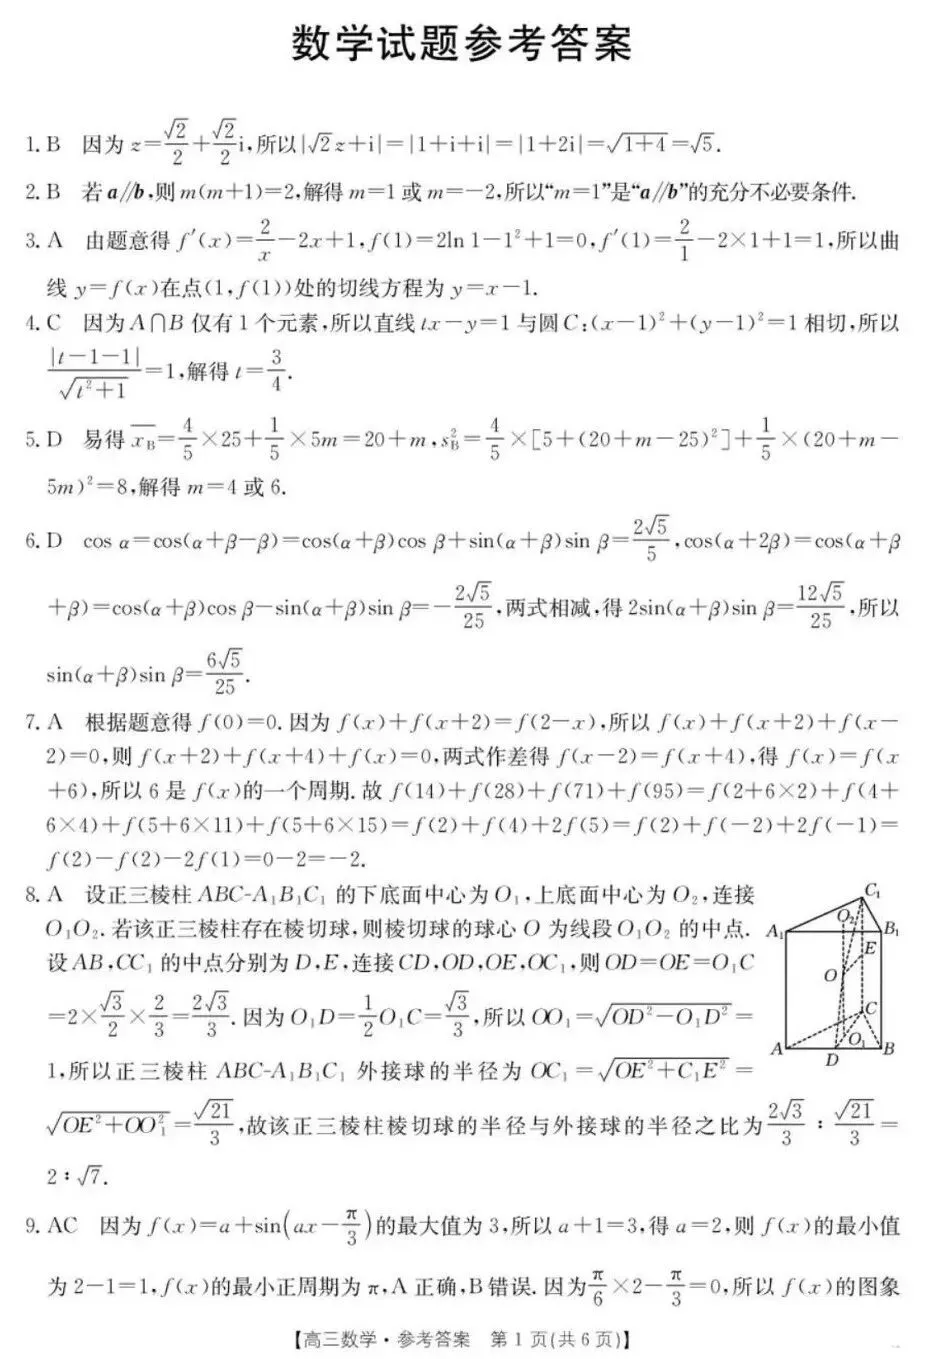 数学试题参考答案
1. B 因为 z=√2/2+√2/2i,所以|√2z+i|=|1+i+i|=|1+2i|=√(1+4)=√5.
2. B 若 a∥b,则 m(m+1)=2,解得 m=1 或 m=-2,所以“m=1”是“a∥b”的充分不必要条件.
3. A 由题意得 f′(x)=2/x-2x+1,f(1)=2ln 1-1²+1=0,f′(1)=2/1-2×1+1=1,所以曲
线 y=f(x)在点(1,f(1))处的切线方程为 y=x-1.
4. C 因为 A∩B 仅有 1 个元素,所以直线 tx-y=1 与圆 C:(x-1)²+(y-1)²=1 相切,所以
|t-1-1|/√(t²+1)=1,解得 t=3/4.
5. D 易得 x̅_B=4/5×25+1/5×5m=20+m,s²_B=4/5×[5+(20+m-25)²]+1/5×(20+m-
5m)²=8,解得 m=4 或 6.
6. D cos α=cos(α+β-β)=cos(α+β)cos β+sin(α+β)sin β=2√5/5,cos(α+2β)=cos(α+β
+β)=cos(α+β)cos β-sin(α+β)sin β=-2√5/25,两式相减,得 2sin(α+β)sin β=12√5/25,所以
sin(α+β)sin β=6√5/25.
7. A 根据题意得 f(0)=0. 因为 f(x)+f(x+2)=f(2-x),所以 f(x)+f(x+2)+f(x-
2)=0,则 f(x+2)+f(x+4)+f(x)=0,两式作差得 f(x-2)=f(x+4),得 f(x)=f(x
+6),所以 6 是 f(x)的一个周期. 故 f(14)+f(28)+f(71)+f(95)=f(2+6×2)+f(4+
6×4)+f(5+6×11)+f(5+6×15)=f(2)+f(4)+2f(5)=f(2)+f(-2)+2f(-1)=
f(2)-f(2)-2f(1)=0-2=-2.
8. A 设正三棱柱 ABC-A₁B₁C₁ 的下底面中心为 O₁,上底面中心为 O₂,连接
O₁O₂. 若该正三棱柱存在棱切球,则棱切球的球心 O 为线段 O₁O₂ 的中点.
设 AB,CC₁ 的中点分别为 D,E,连接 CD,OD,OE,OC₁,则 OD=OE=O₁C
=2×√3/2×2/3=2√3/3. 因为 O₁D=1/2O₁C=√3/3,所以 OO₁=√(OD²-O₁D²)=
1,所以正三棱柱 ABC-A₁B₁C₁ 外接球的半径为 OC₁=√(OE²+C₁E²)=
√(OE²+OO₁²)=√21/3,故该正三棱柱棱切球的半径与外接球的半径之比为2√3/3∶√21/3=
2∶√7.
C₁
O₂
A₁
B₁
E
O
C
O₁
A
D
B
9. AC 因为 f(x)=a+sin(ax-π/3)的最大值为 3,所以 a+1=3,得 a=2,则 f(x)的最小值
为 2-1=1,f(x)的最小正周期为 π,A 正确,B 错误. 因为π/6×2-π/3=0,所以 f(x)的图象
【高三数学·参考答案 第 1 页(共 6 页)】